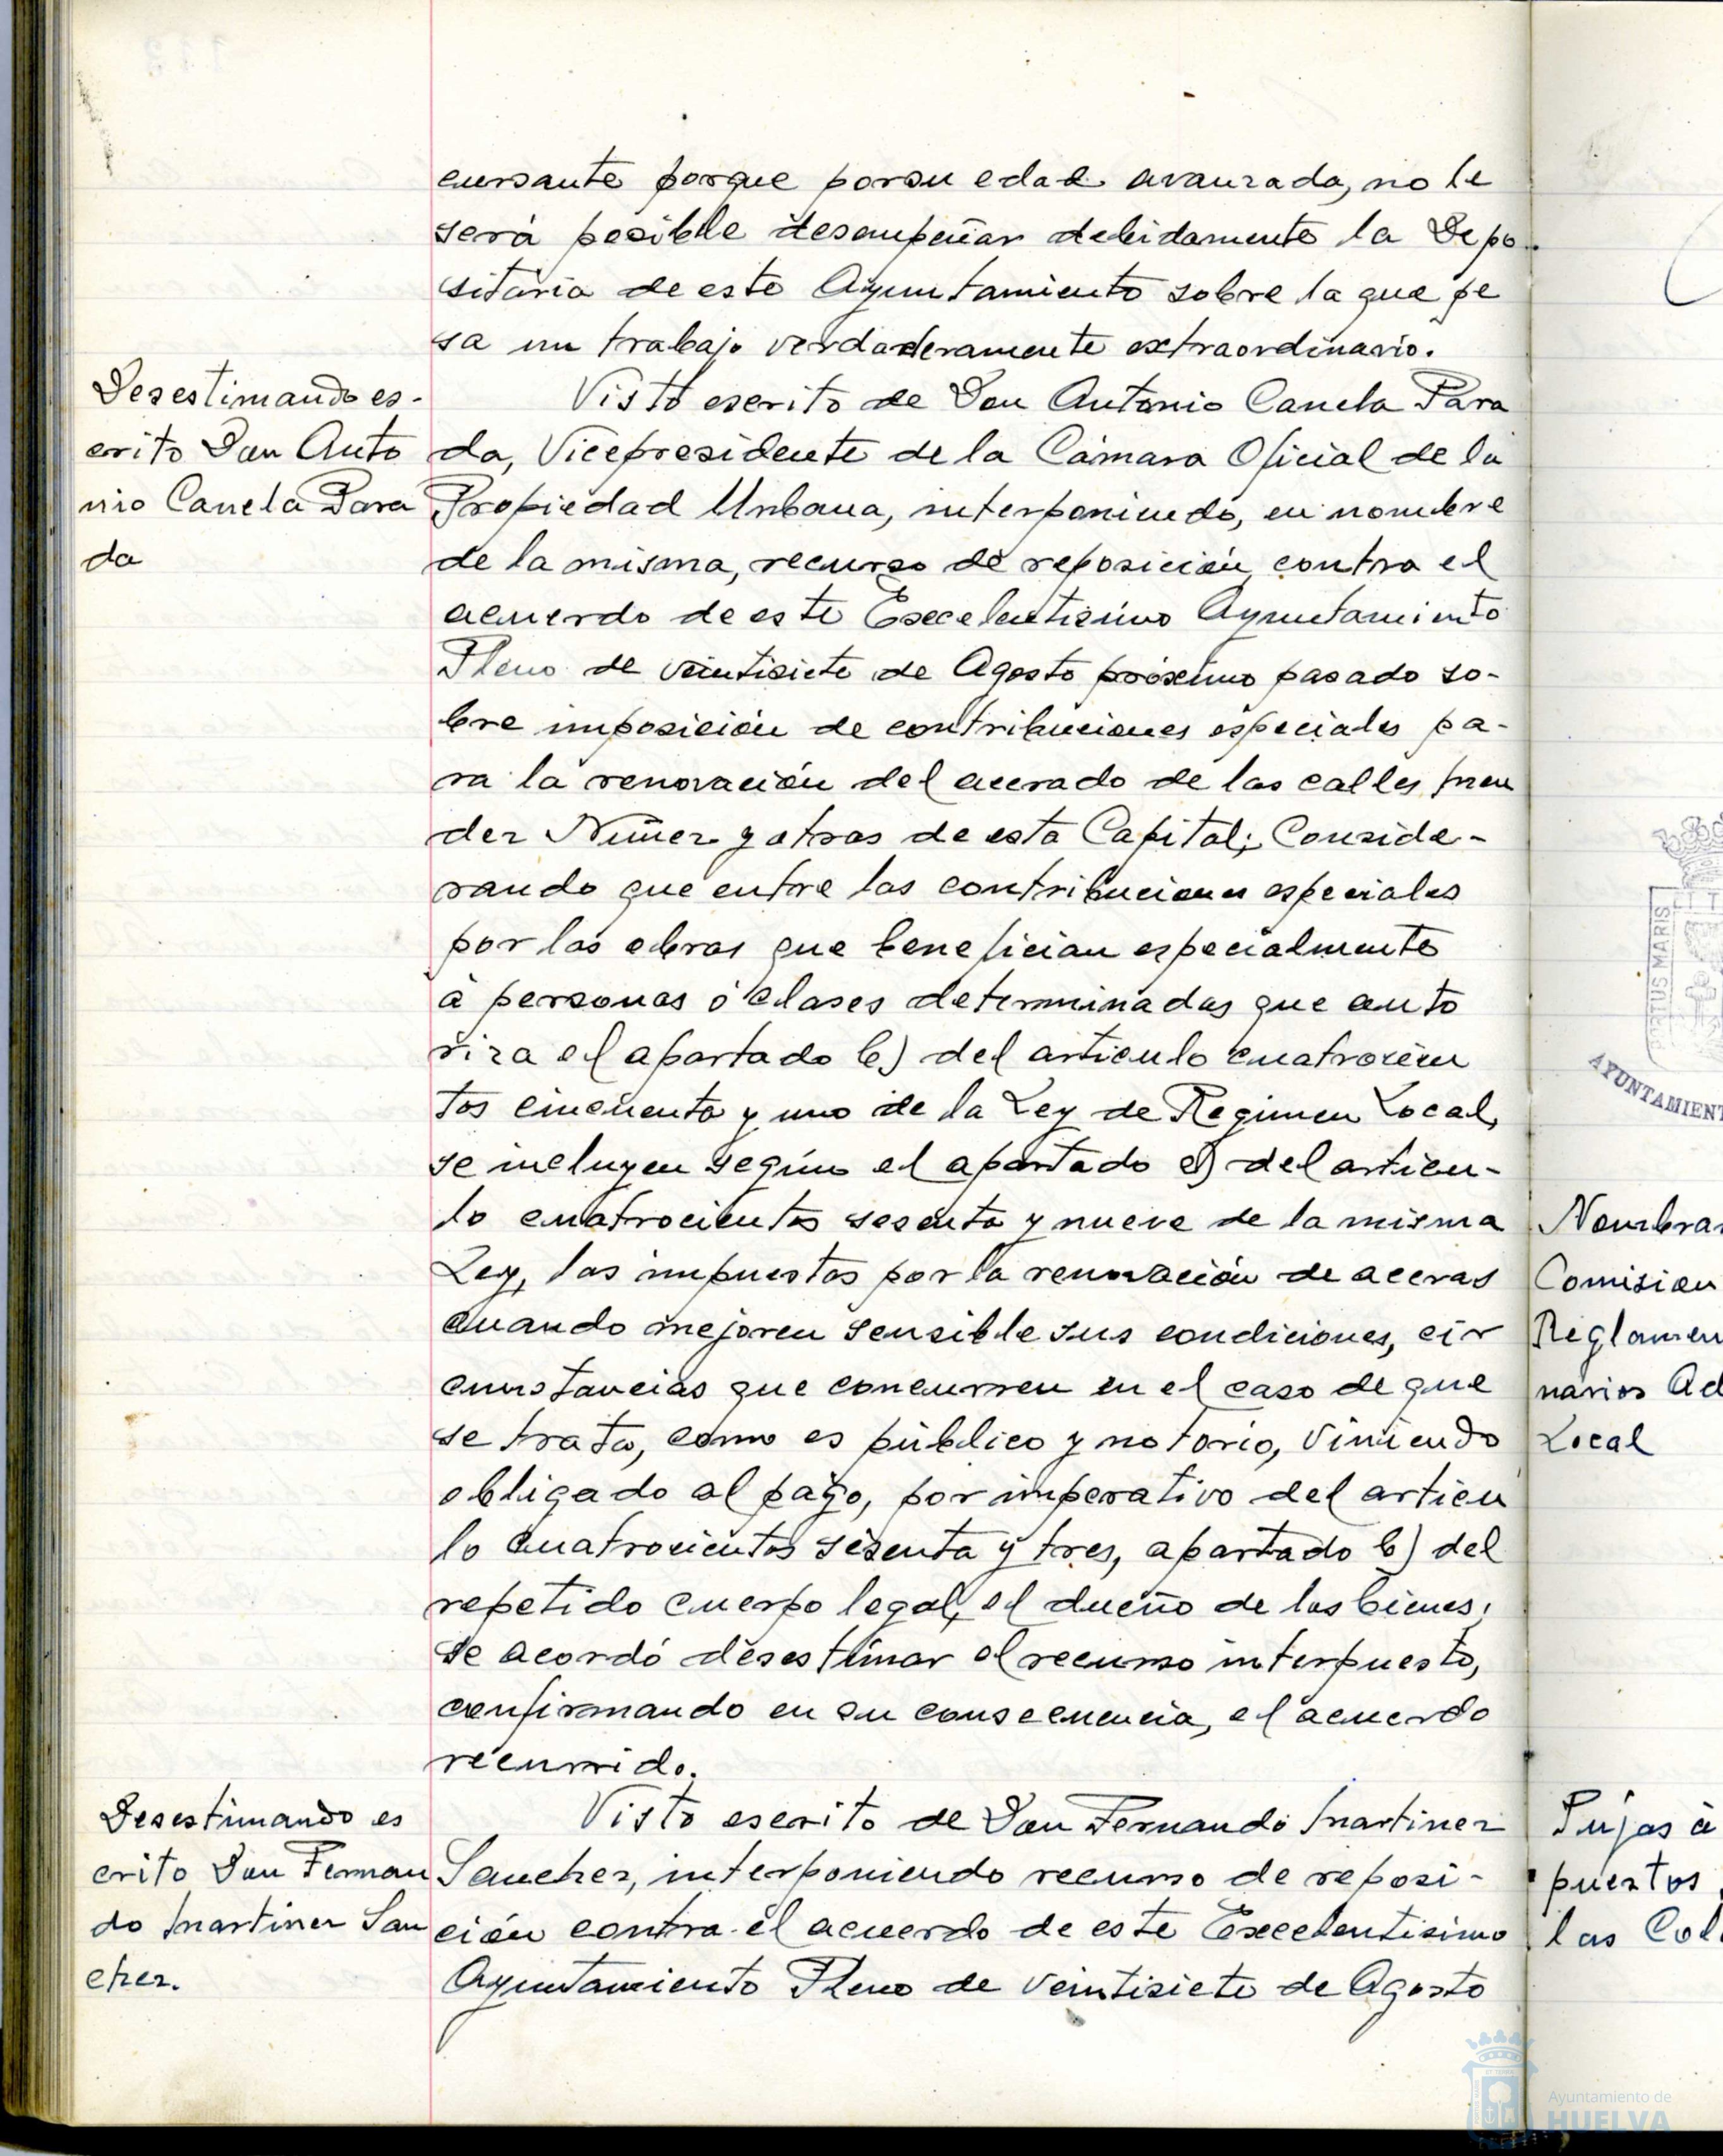 cursante porque por su edad avanzada, no le
será posible desempeñar debidamente la Depo-
sitaria de este Ayuntamiento sobre la que pe
sa un trabajo verdaderamente extraordinario.
Desestimando es-
crito Don Anto
nio Canela Para
da
Visto escrito de Don Antonio Canela Para
da, Vicepresidente de la Cámara Oficial de la
Propiedad Urbana, interponiendo, en nombre
de la misma, recurso de reposición contra el
acuerdo de este Excelentisimo Ayuntamiento
Pleno de veintisiete de Agosto próximo pasado so-
bre imposición de contribuciones especiales pa-
ra la renovación del acerado de las calles Men
dez Nuñez y otras de esta Capital; Conside-
rando que entre las contribuciones especiales
por las obras que benefician especialmente
á personas ó clases determinadas que auto
riza el apartado b) del articulo cuatrocien
tos cincuenta y uno de la Ley de Regimen Local,
se incluyen según el apartado e) del articu-
lo cuatrocientos sesenta y nueve de la misma
Ley, las impuestas por la renovación de aceras
cuando mejoren sensible sus condiciones, cir
cunstancias que concurren en el caso de que
se trata, como es público y notorio, viniendo
obligado al pago, por imperativo del articu
lo cuatrocientos sesenta y tres, apartado b) del
repetido cuerpo legal, el dueño de los bienes;
se acordó desestimar el recurso interpuesto,
confirmando en su consecuencia, el acuerdo
recurrido.
Desestimando es
crito Don Fernan
do Martinez San
chez.
Visto escrito de Don Fernando Martinez
Sanchez, interponiendo recurso de reposi-
ción contra el acuerdo de este Excelentisimo
Ayuntamiento Pleno de veintisiete de Agosto
PORTUS MARIS
AYUNTAMIENT
Nombra
Comision
Reglamen
narios Ad
Local
Pujas á
puestos
las Col
Ayuntamiento de
HUELVA